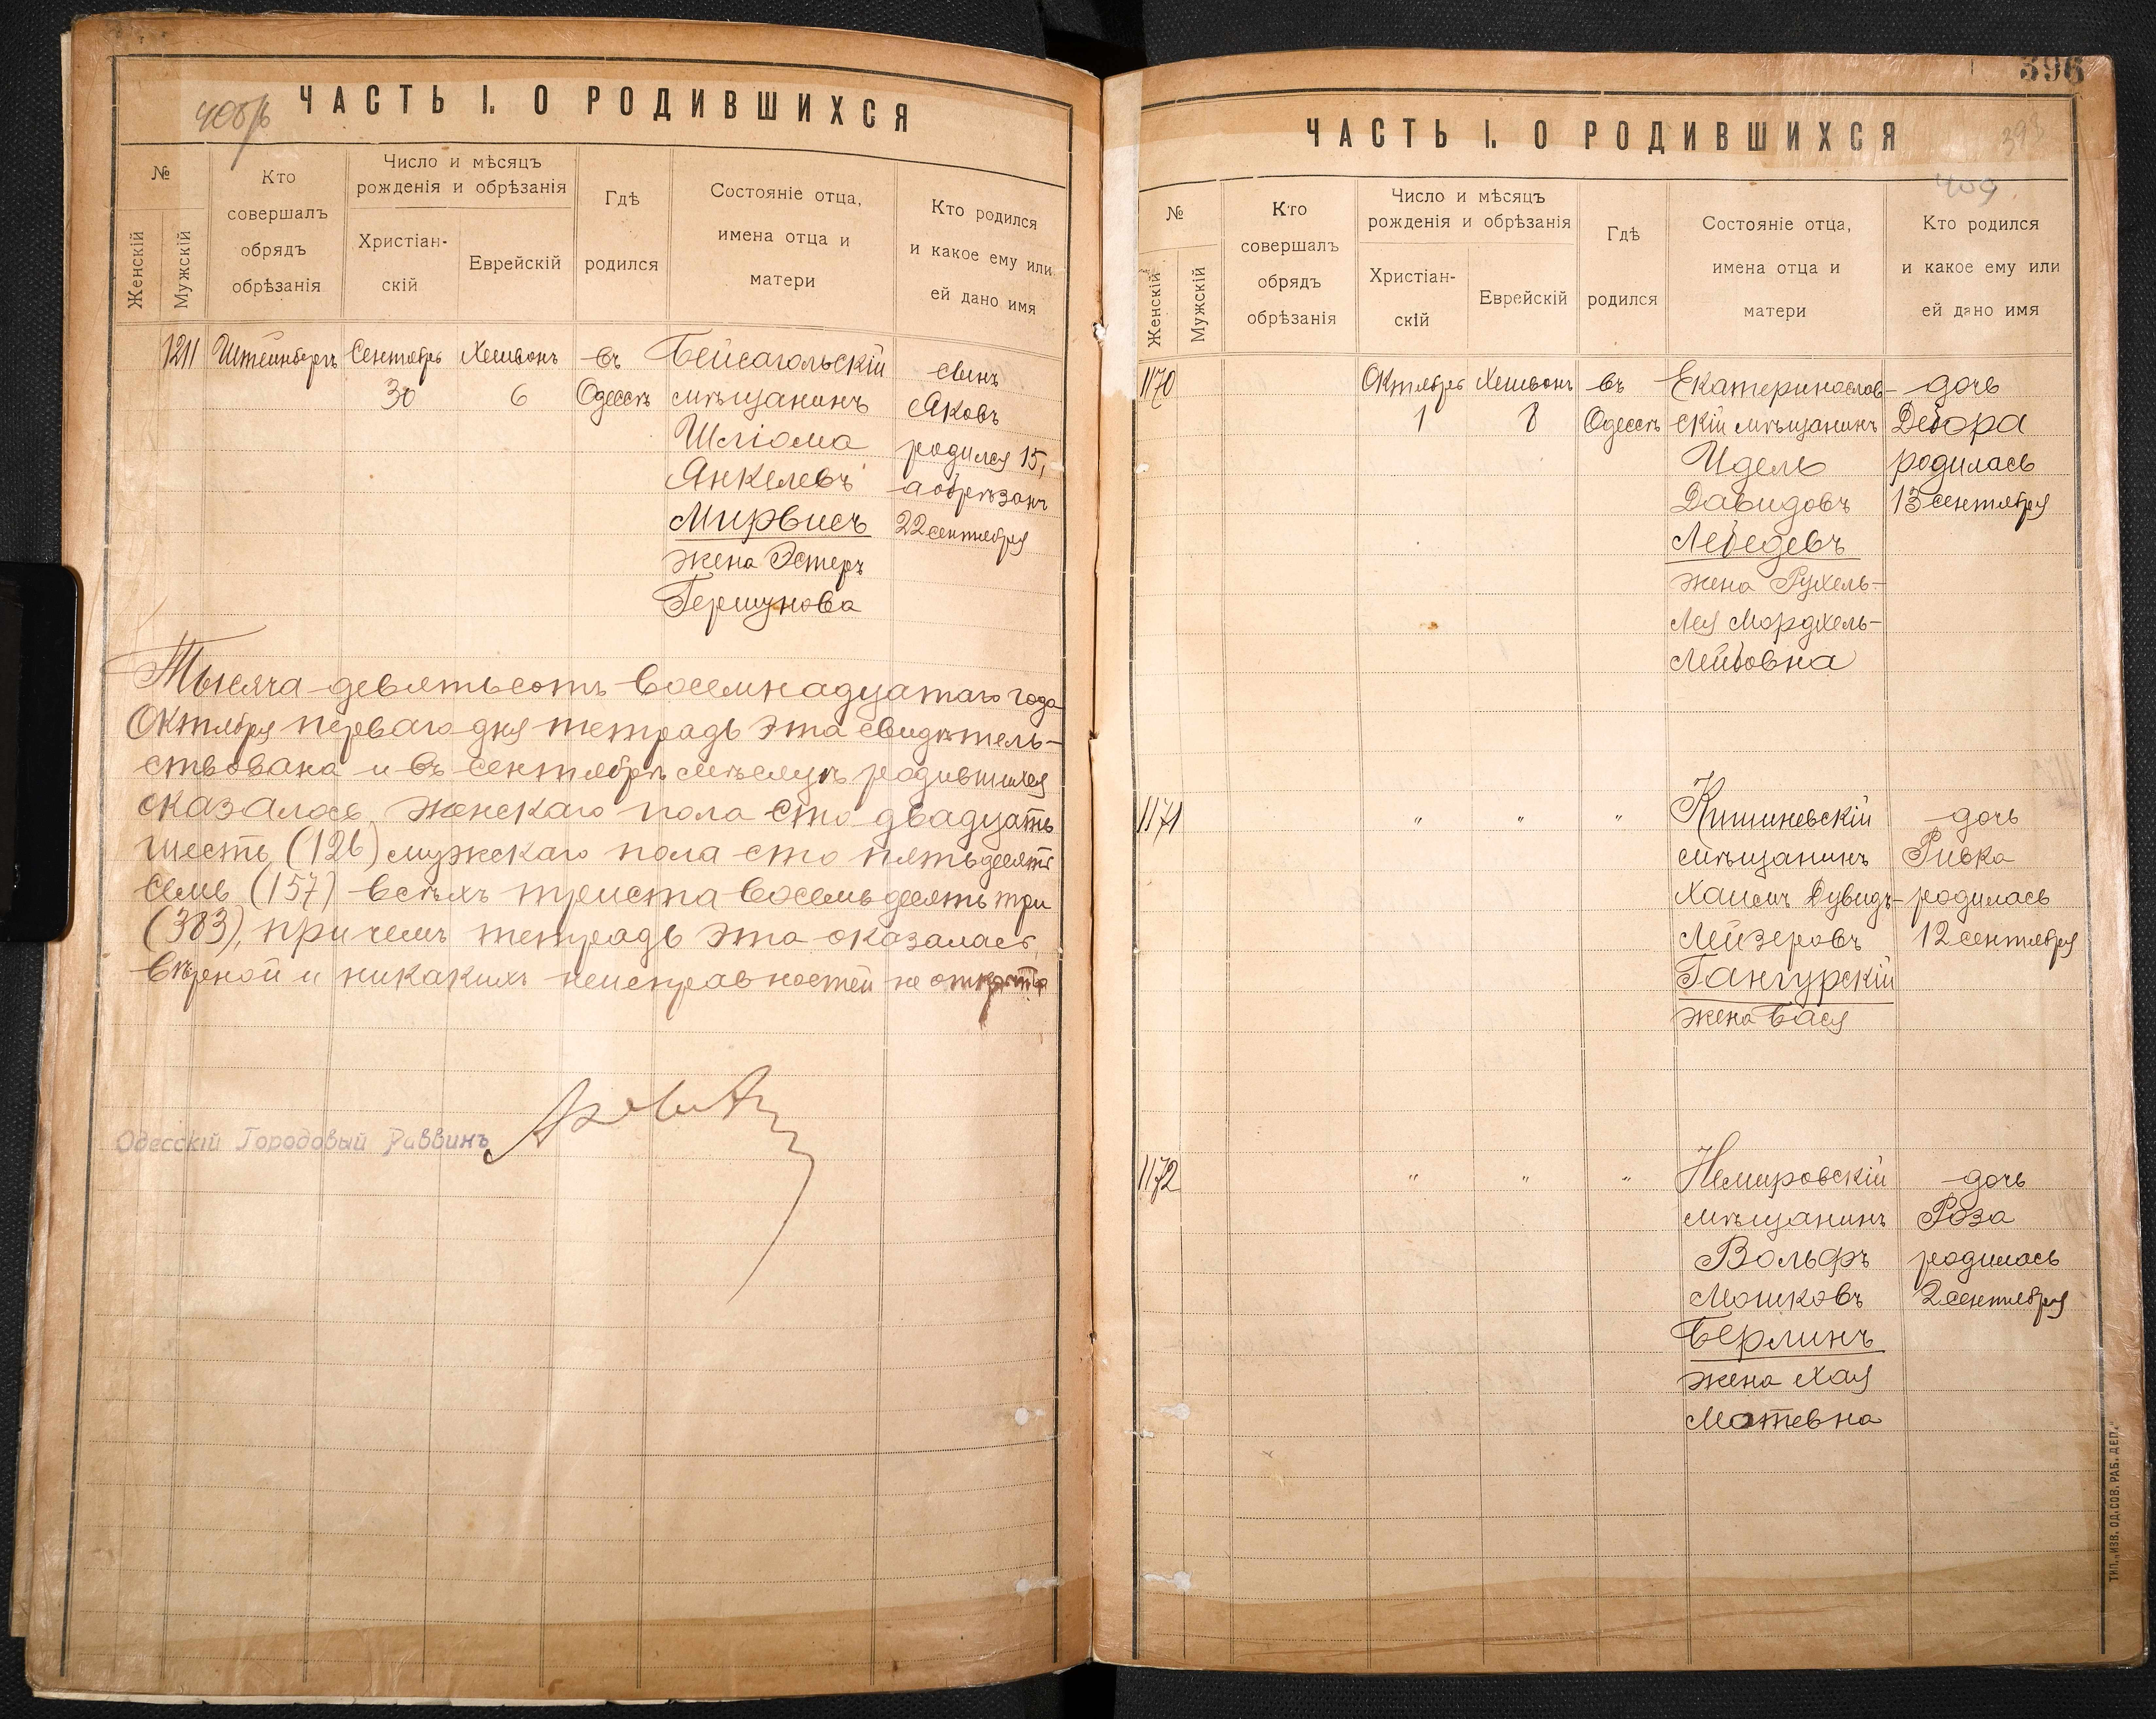 408/б
ЧАСТЬ I. О РОДИВШИХСЯ
№
Женскій
Мужскій
Кто
совершалъ
обрядъ
обрѣзанія
Число и мѣсяцъ
рожденія и обрѣзанія
Христіан-
скій
Еврейскій
Гдѣ
родился
Состояніе отца,
имена отца и
матери
Кто родился
и какое ему или
ей дано имя
1211
Штейнбергъ
Сентябрь
30
Хешвонъ
6
въ
Одессѣ
Бейсагольскій
мѣщанинъ
Шліома
Янкелевъ
Мирвисъ
жена Эстеръ
Гершунова
сынъ
Яковъ
родился 15,
а обрѣзанъ
22 сентября
Тысяча девятьсотъ восемнадцатаго года
Октября перваго дня тетрадь эта свидѣтель-
ствована и въ сентябрѣ мѣсяцѣ родившихся
оказалось женскаго пола сто двадцать
шесть (126) мужскаго пола сто пятьдесятъ
семь (157) всѣхъ триста восемьдесятъ три
(383), при чемъ тетрадь эта оказалась
вѣрной и никакихъ неисправностей не открыто
Одесскій Городовый Раввинъ
396
393
409.
ЧАСТЬ I. О РОДИВШИХСЯ
№
Женскій
Мужскій
Кто
совершалъ
обрядъ
обрѣзанія
Число и мѣсяцъ
рожденія и обрѣзанія
Христіан-
скій
Еврейскій
Гдѣ
родился
Состояніе отца,
имена отца и
матери
Кто родился
и какое ему или
ей дано имя
1170
Октябрь
1
Хешвонъ
8
въ
Одессѣ
Екатеринослав-
скій мѣщанинъ
Идель
Давидовъ
Лебедевъ
жена Рухель-
Лея Мордхель-
Лейбовна
дочь
Дебора
родилась
13 сентября
1171
"
"
"
Кишиневскій
мѣщанинъ
Хаимъ Дувидъ-
Лейзеровъ
Гангурскій
жена Бася
дочь
Ривка
родилась
12 сентября
1172
"
"
"
Немировскій
мѣщанинъ
Вольфъ
Мошковъ
Берлинъ
жена Хая
Мотевна
дочь
Роза
родилась
2 сентября
ТИП. „ИЗВ. ОД. СОВ. РАБ. ДЕП."